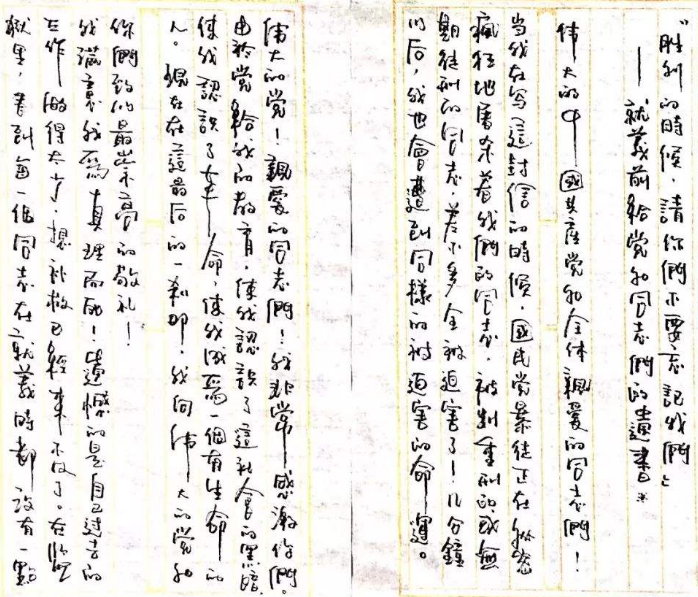 “胜利的时候，請你們不要忘記我們”
——就義前給党和同志們的遺書*
偉大的中国共產党和全体親爱的同志們！
當我在写這封信的時候，国民党暴徒正在秘密
瘋狂地屠杀着我們的同志，被判重刑的或無
期徒刑的同志，差不多全被迫害了！几分鐘
以后，我也會遭到同樣的被迫害的命運。
偉大的党！親爱的同志們！我非常感激你們。
由於党給我的教育，使我認識了這社會的黑暗，
使我認識了革命，使我成為一個有生命的
人。現在在這最后的一刹那，我向偉大的党和
你們致以最崇高的敬礼！
我滿意我為真理而死！遺憾的是自己過去的
工作做得太少，想补救已經來不及了。在監
獄里，看到每一個同志在就義時都沒有一點